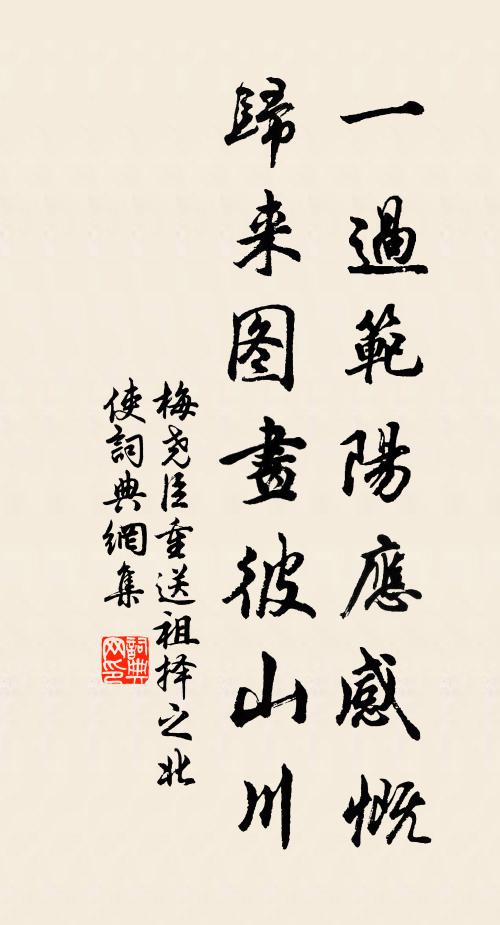 一過範陽應感慨
歸来图畫彼山川
梅尧臣重送祖择之北
使詞典網集
詞典
网印